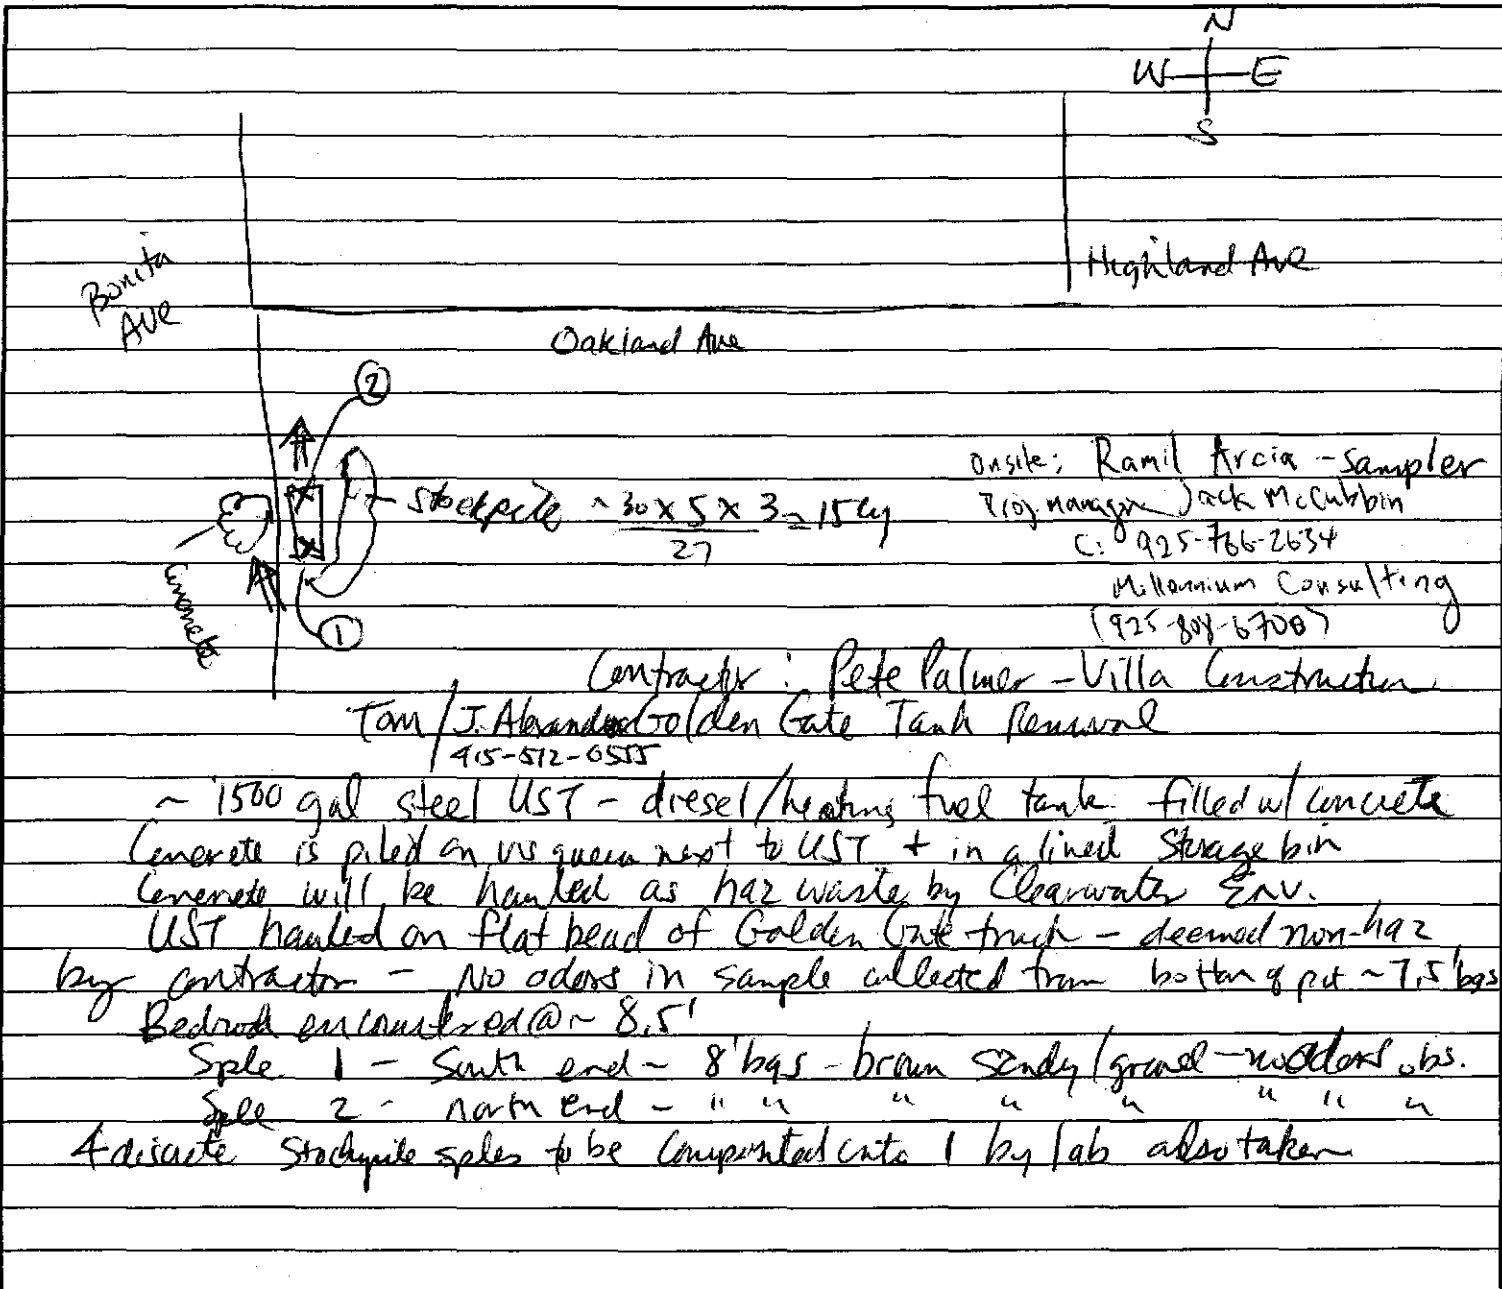 N
W E
S
Bonita
Ave
Highland Ave
Oakland Ave
2
Stockpile ~ 30 x 5 x 3 = 15 cy
27
Concrete
1
Onsite: Ramil Arcia - Sampler
Proj manager Jack McCubbin
C: 925-766-2634
Millennium Consulting
(925-808-6700)
Contractor: Pete Palmer - Villa Construction
Tom / J. Alexander Golden Gate Tank Removal
415-512-0555
~ 1500 gal steel UST - diesel/heating fuel tank filled w/ concrete
Concrete is piled on visqueen next to UST + in a lined Storage bin
Concrete will be hauled as haz waste by Clearwater Env.
UST hauled on flat bead of Golden Gate truck - deemed non-haz
by contractor - No odors in sample collected from bottom of pit ~ 7.5' bgs
Bedrock encountered @ ~ 8.5'
Sple 1 - South end - 8' bgs - brown sandy/gravel - no odors obs.
Sple 2 - north end - " " " " " " " "
4 discrete Stockpile sples to be composited into 1 by lab also taken